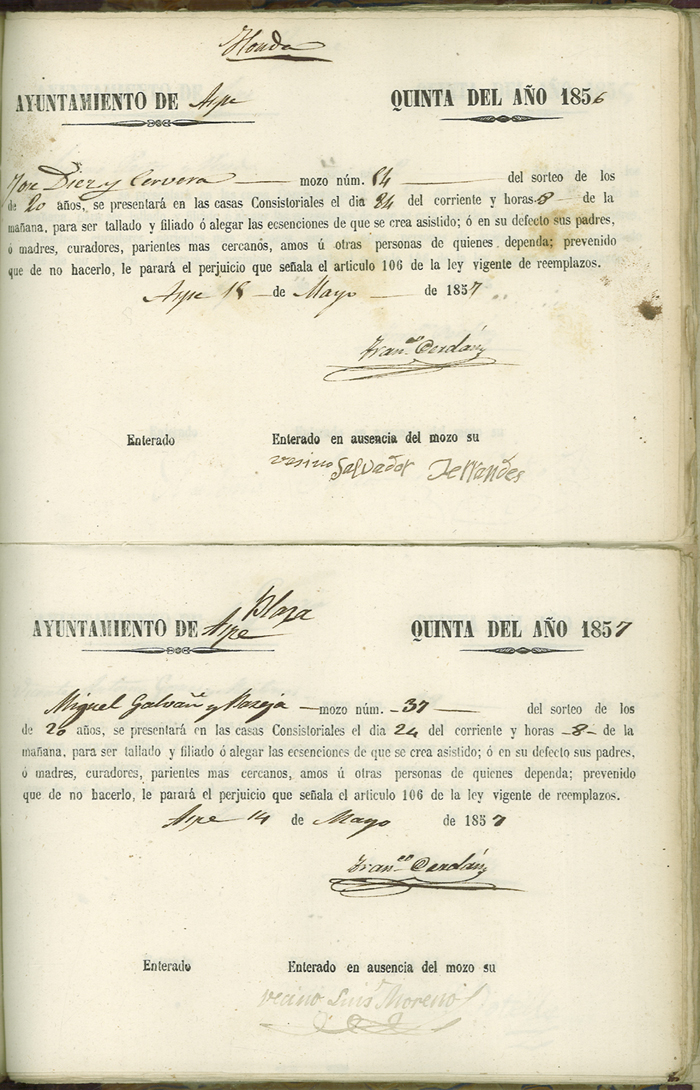 Honda
AYUNTAMIENTO DE Aspe QUINTA DEL AÑO 1856
Jose Diez y Cervera mozo núm. 64 del sorteo de los
de 20 años, se presentará en las casas Consistoriales el dia 24 del corriente y horas 8 de la
mañana, para ser tallado y filiado ó alegar las ecsenciones de que se crea asistido; ó en su defecto sus padres,
ó madres, curadores, parientes mas cercanos, amos ú otras personas de quienes dependa; prevenido
que de no hacerlo, le parará el perjuicio que señala el articulo 106 de la ley vigente de reemplazos.
Aspe 18 de Mayo de 1857
Fran.co Cerdán
Enterado Enterado en ausencia del mozo su
vesino Salvador Ferrandes
Plaza
AYUNTAMIENTO DE Aspe QUINTA DEL AÑO 1857
Miguel Galvañ y Pareja mozo núm. 37 del sorteo de los
de 20 años, se presentará en las casas Consistoriales el dia 24 del corriente y horas 8 de la
mañana, para ser tallado y filiado ó alegar las ecsenciones de que se crea asistido; ó en su defecto sus padres,
ó madres, curadores, parientes mas cercanos, amos ú otras personas de quienes dependa; prevenido
que de no hacerlo, le parará el perjuicio que señala el articulo 106 de la ley vigente de reemplazos.
Aspe 14 de Mayo de 1857
Fran.co Cerdán
Enterado Enterado en ausencia del mozo su
vecino Luis Moreno